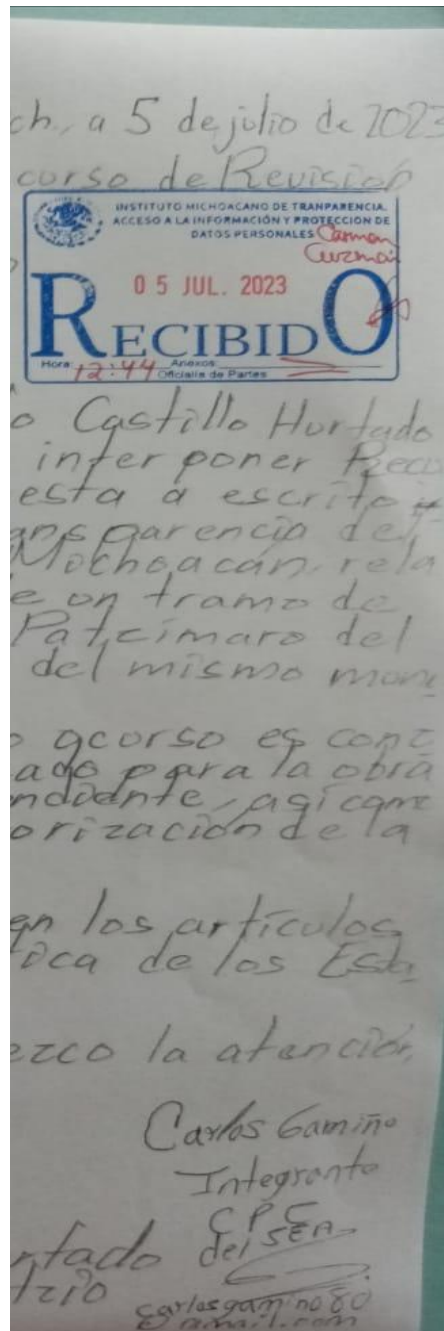 ch, a 5 de julio de 2023
curso de Revisión
INSTITUTO MICHOACANO DE TRANPARENCIA,
ACCESO A LA INFORMACIÓN Y PROTECCIÓN DE
DATOS PERSONALES
Carmen
Guzmán
05 JUL. 2023
RECIBIDO
Hora: 12:44 Anexos:
Oficialía de Partes
o Castillo Hurtado
interponer Recu
esta a escrito
ansparencia del
Mochoacán rela
e on tramo de
Patzimaro del
del mismo mun
o gcurso es cont
ado para la obra
ndiente, agi come
orización de la
en los artículos
oca de los Esta
ezco la atención
Carlos Gamiño
Integrante
CPC
del SEA
rtado
tzio
carlosgamino80
@gmail.com